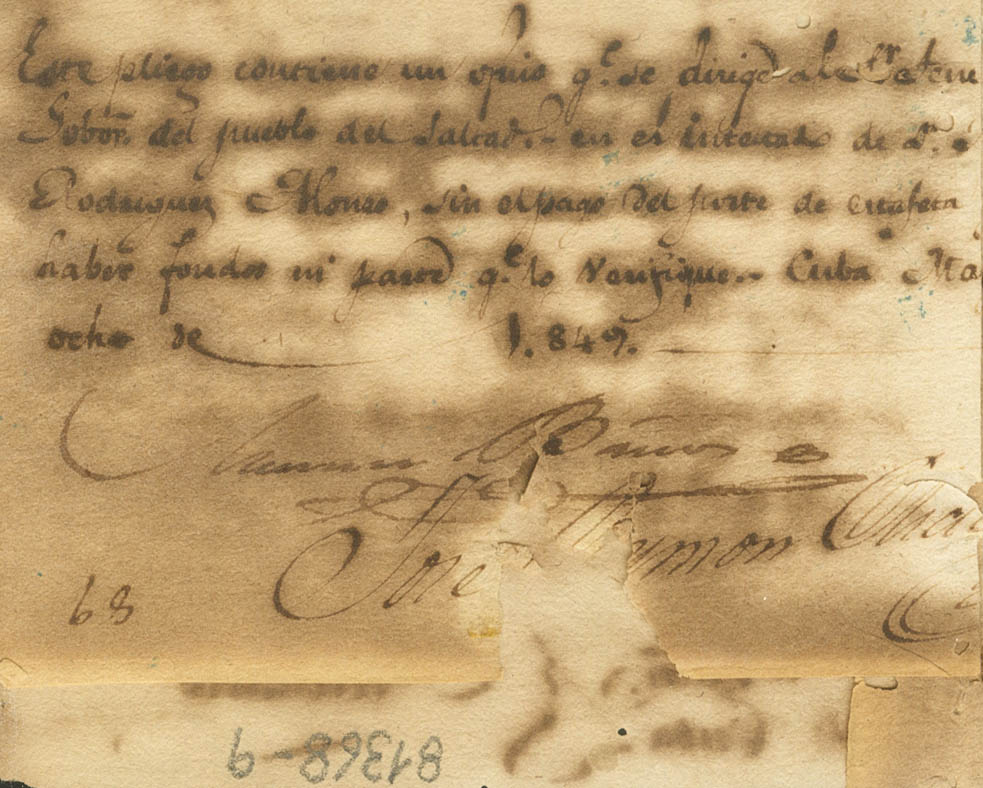 Este pliego contiene un oficio q.e se dirige al Sr. Teni
Gobor. del pueblo del Saltad.- en el intestado de D.
Rodriguez Alonso, sin el pago del porte de estafeta
haber fondos ni parte q.e lo verifique.- Cuba Ma
ocho de 1.849.
Ramon Baños
Jose Raymon
68
81368-9